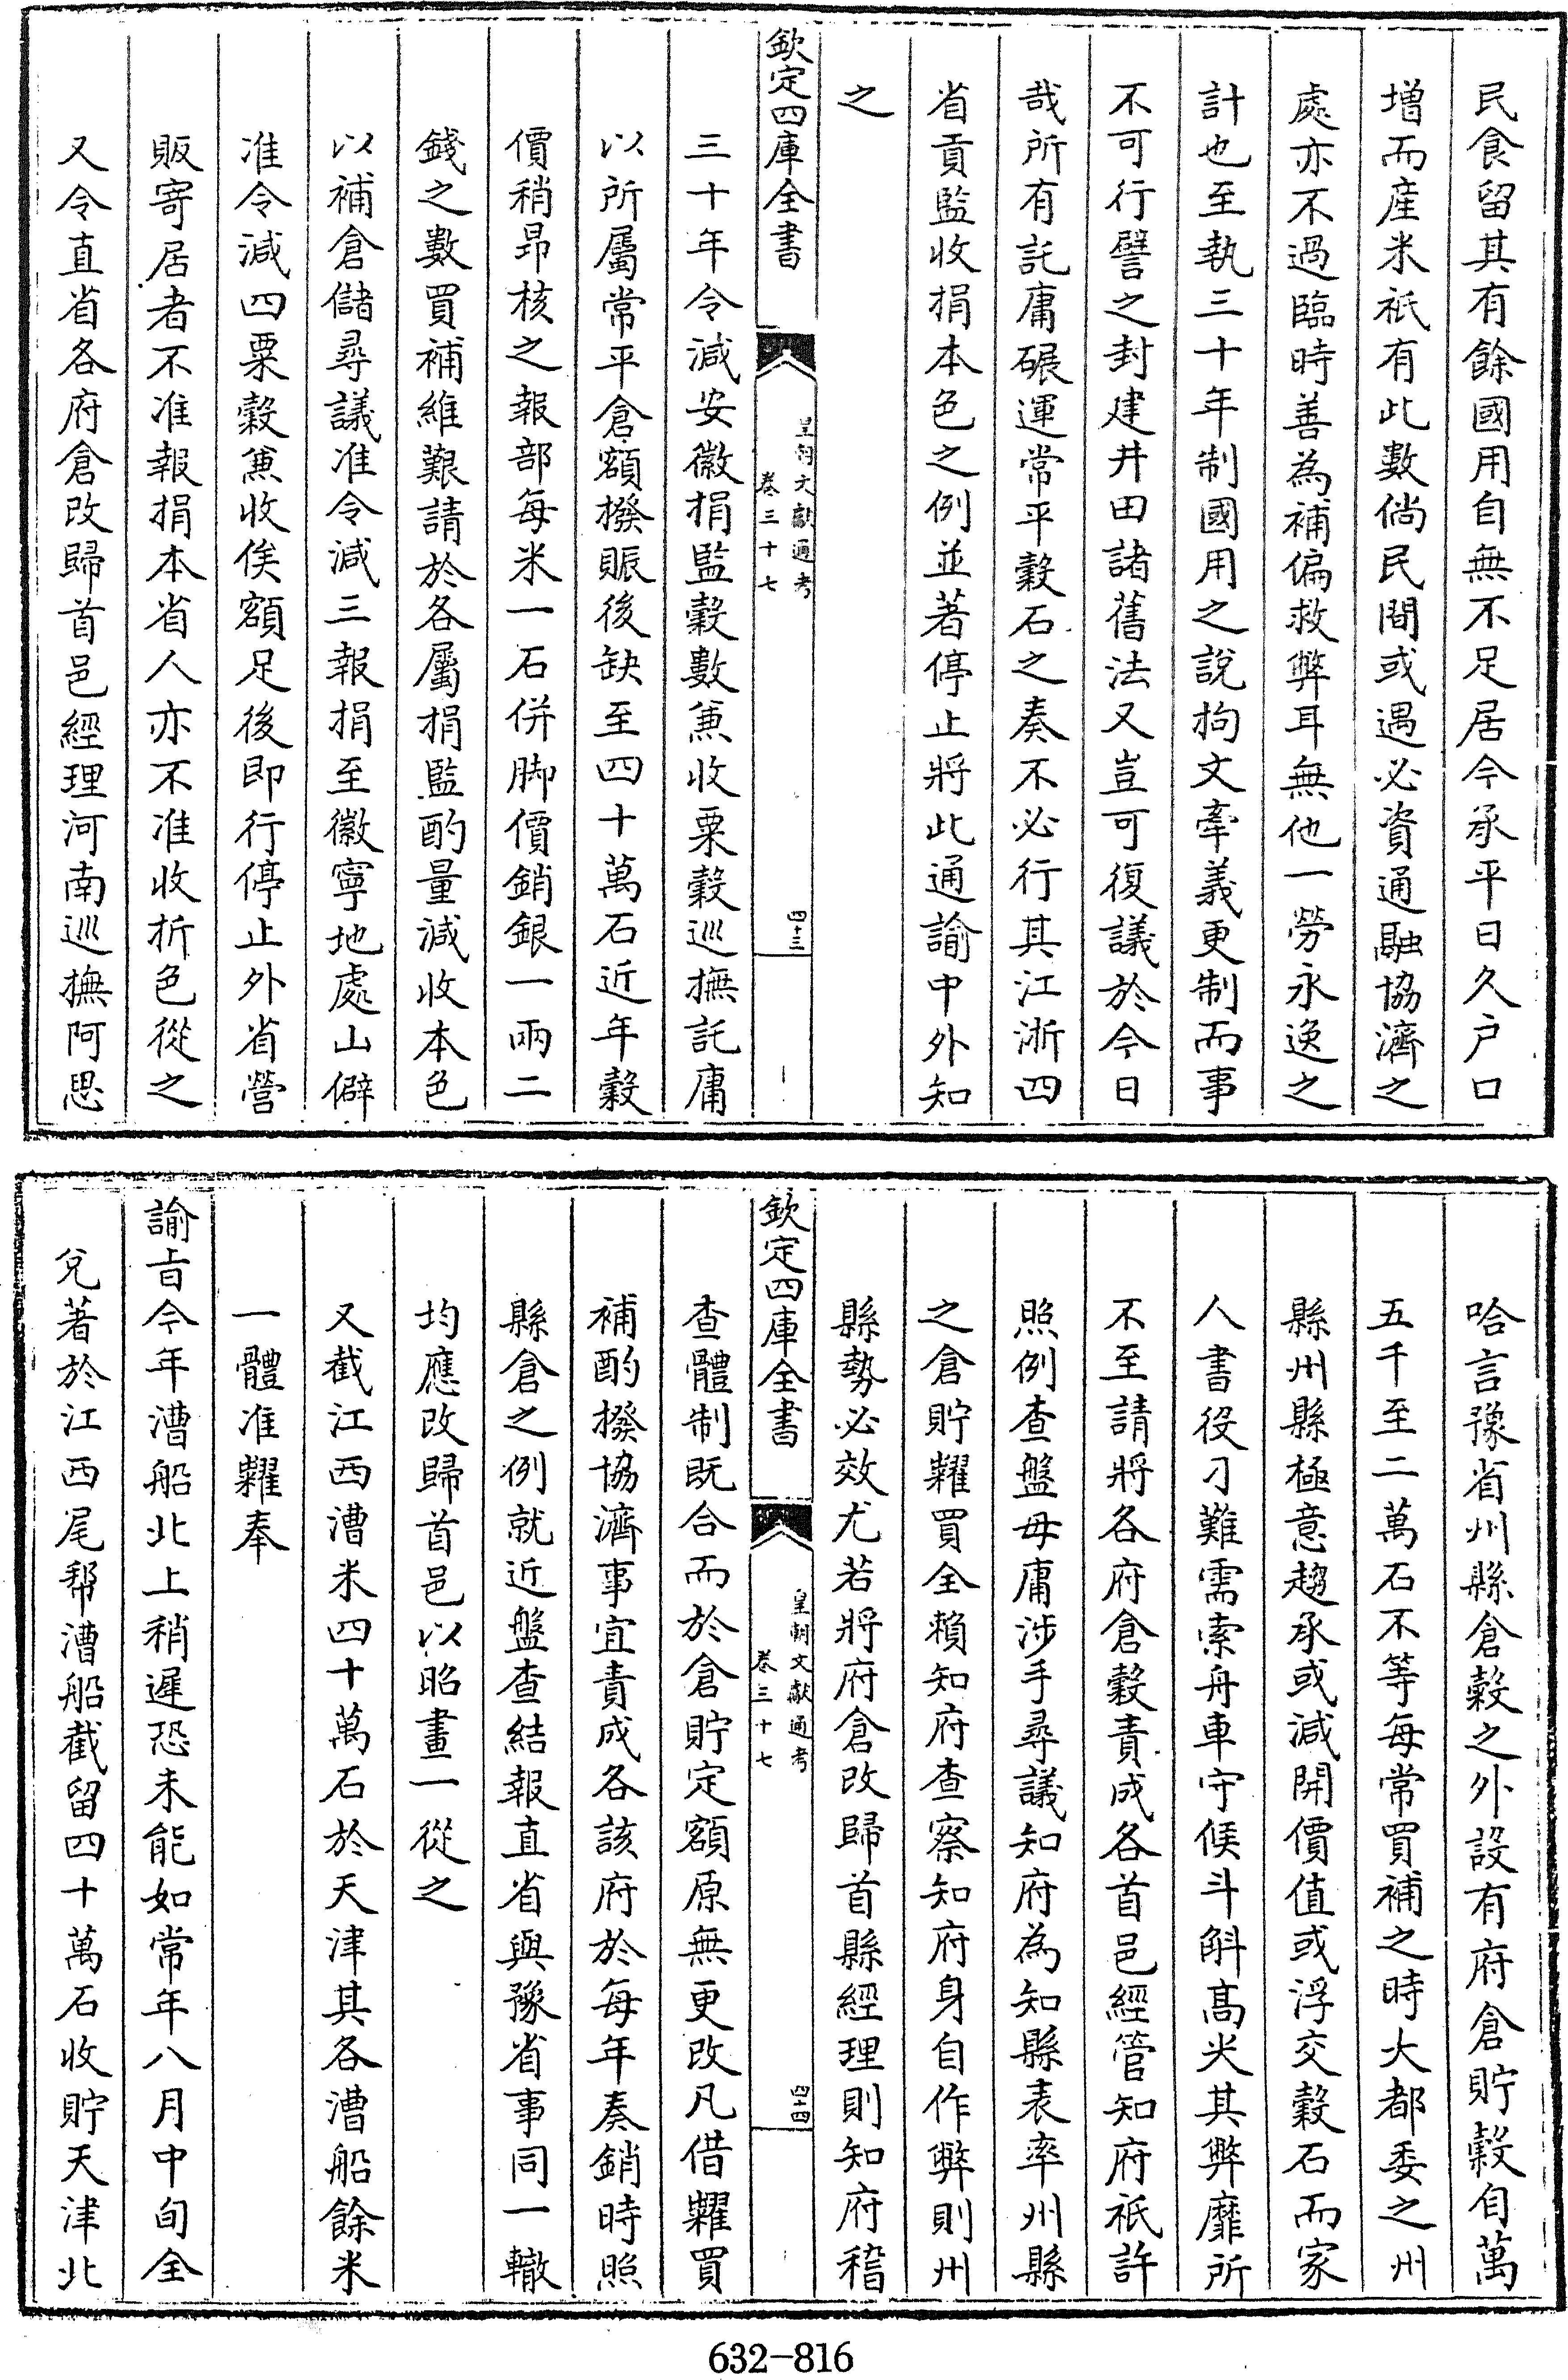 民食留其有餘國用自無不足居今承平日久户口
增而產米祇有此數倘民間或遇必資通融協濟之
處亦不過臨時善為補偏救弊耳無他一勞永逸之
計也至執三十年制國用之說拘文牽義更制而事
不可行譬之封建井田諸舊法又豈可復議於今日
哉所有託庸碾運常平穀石之奏不必行其江浙四
省貢監收捐本色之例並著停止將此通諭中外知
之
欽定四庫全書
皇朝文獻通考
卷三十七
四十三
三十年令減安徽捐監穀數兼收粟穀巡撫託庸
以所屬常平倉額撥賑後缺至四十萬石近年穀
價稍昂核之報部每米一石併脚價銷銀一兩二
錢之數買補維艱請於各屬捐監酌量減收本色
以補倉儲尋議准令減三報捐至徽寧地處山僻
准令減四粟穀兼收俟額足後即行停止外省營
販寄居者不准報捐本省人亦不准收折色從之
又令直省各府倉改歸首邑經理河南巡撫阿思
哈言豫省州縣倉穀之外設有府倉貯穀自萬
五千至二萬石不等每常買補之時大都委之州
縣州縣極意趨承或減開價值或浮交穀石而家
人書役刁難需索舟車守候斗斛高尖其弊靡所
不至請將各府倉穀責成各首邑經管知府祇許
照例查盤毋庸涉手尋議知府為知縣表率州縣
之倉貯糶買全賴知府查察知府身自作弊則州
縣勢必效尤若將府倉改歸首縣經理則知府稽
欽定四庫全書
皇朝文獻通考
卷三十七
四十四
查體制既合而於倉貯定額原無更改凡借糶買
補酌撥協濟事宜責成各該府於每年奏銷時照
縣倉之例就近盤查結報直省與豫省事同一轍
均應改歸首邑以昭畫一從之
又截江西漕米四十萬石於天津其各漕船餘米
一體准糶奉
諭旨今年漕船北上稍遲恐未能如常年八月中旬全
兌著於江西尾幫漕船截留四十萬石收貯天津北
632-816